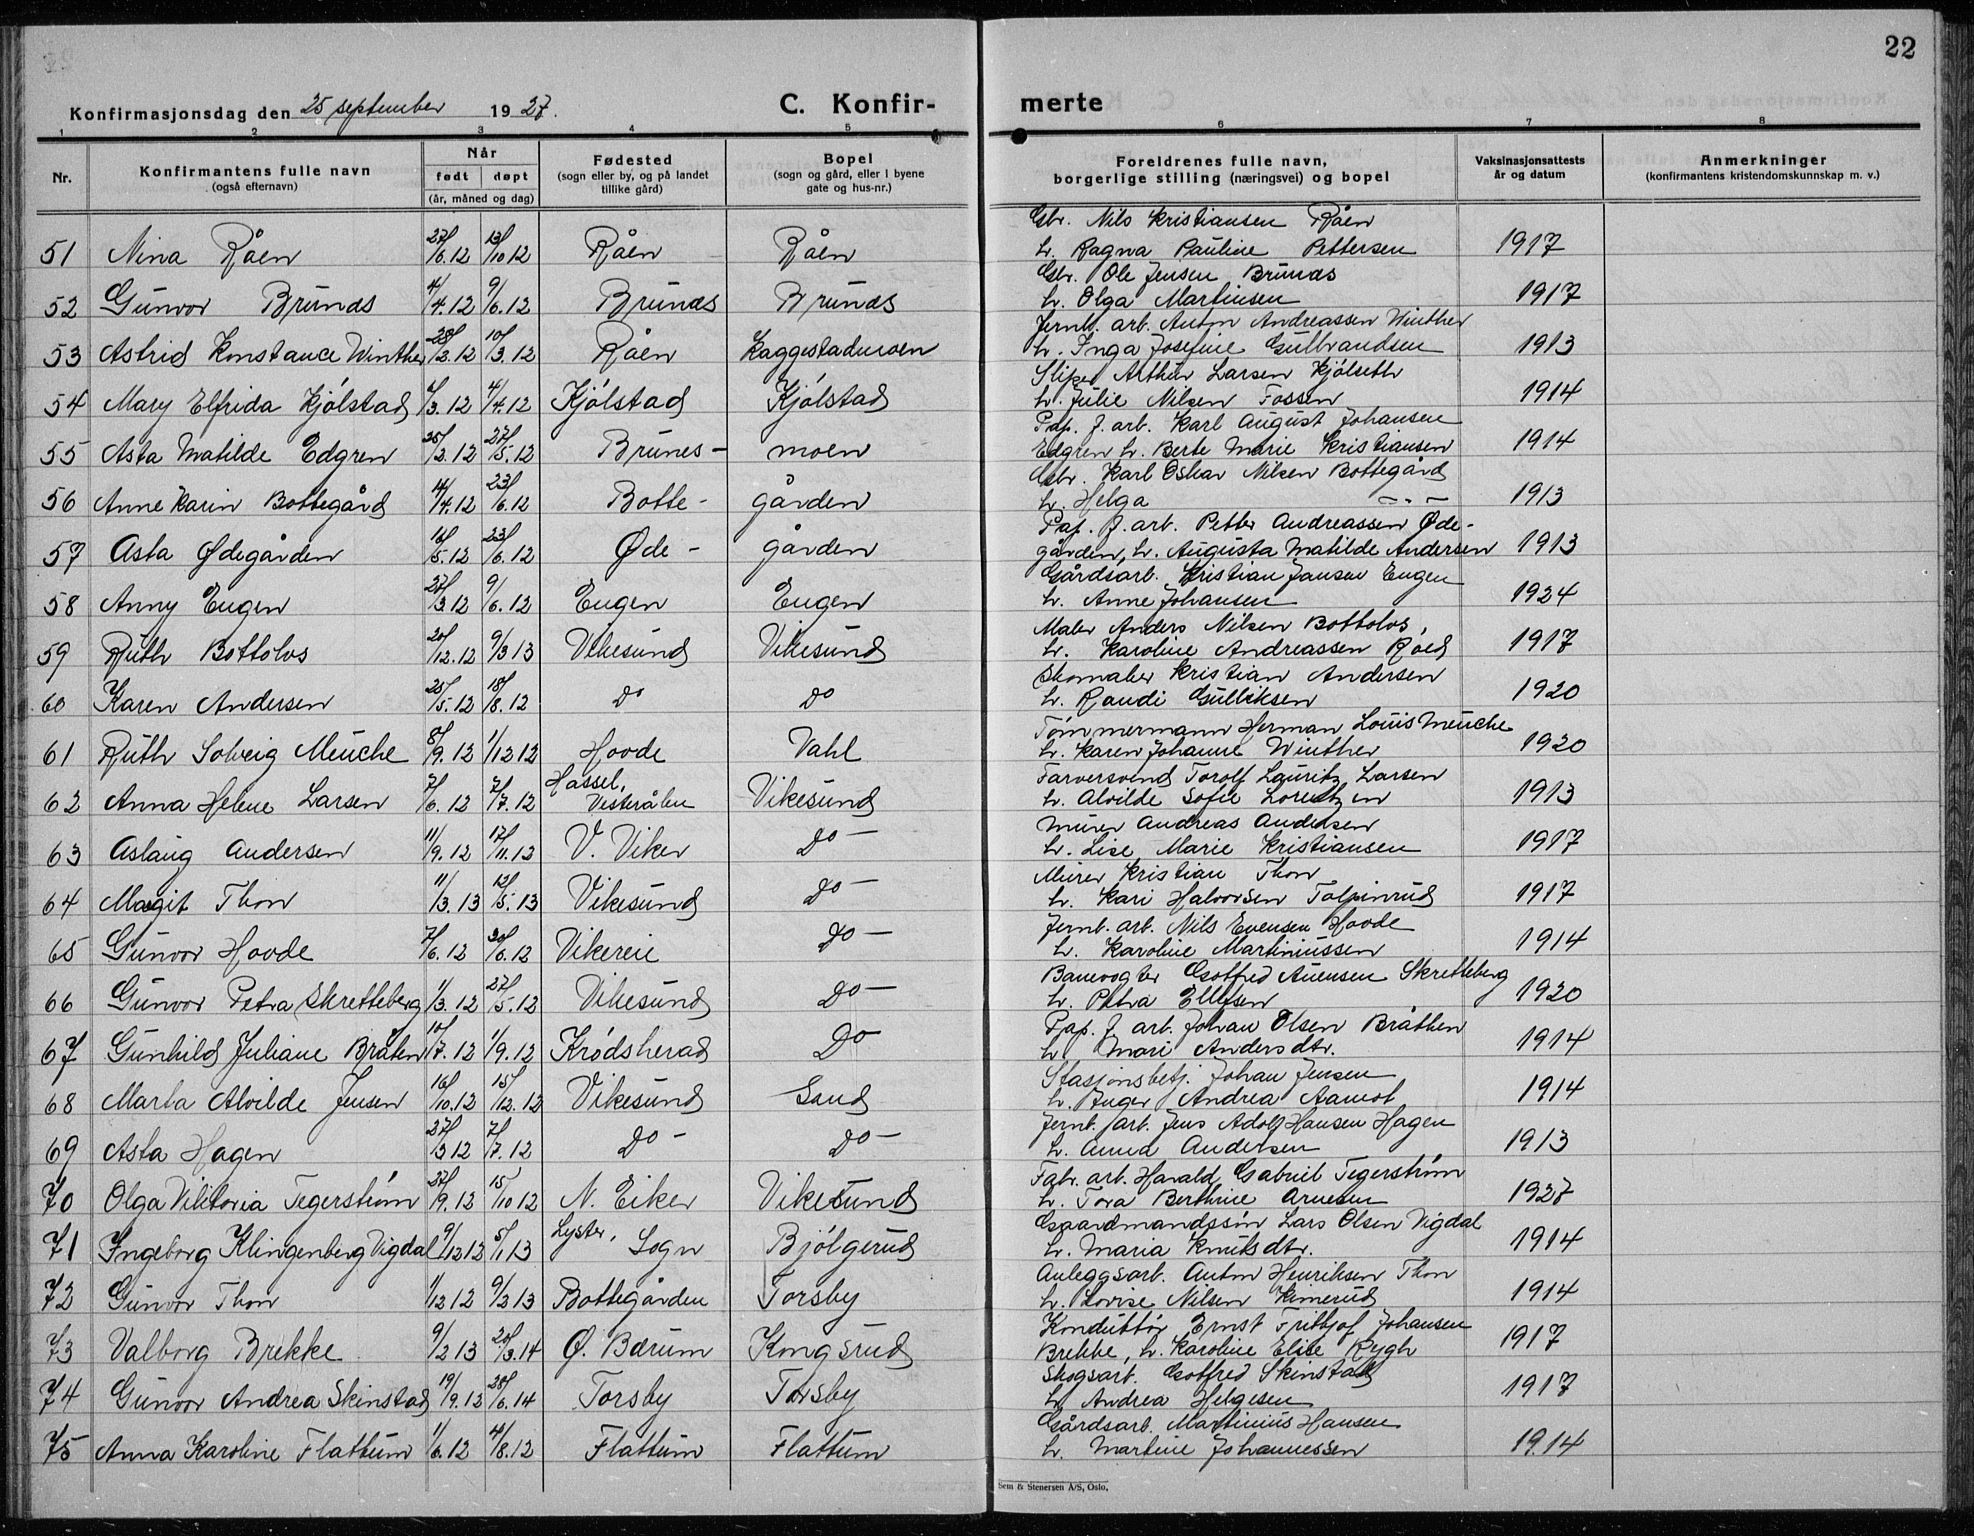 22
Konfirmasjonsdag den 25 september 1927.
C. Konfir- merte
1 2 3 4 5 6 7 8
Nr.
Konfirmantens fulle navn
(også efternavn)
Når
født døpt
(år, måned og dag)
Fødested
(sogn eller by, og på landet
tillike gård)
Bopel
(sogn og gård, eller i byene
gate og hus-nr.)
Foreldrenes fulle navn,
borgerlige stilling (næringsvei) og bopel
Vaksinasjonsattests
år og datum
Anmerkninger
(konfirmantens kristendomskunnskap m. v.)
Gbr. Nils Kristiansen Råen
51 Nina Råen 27/6.12 13/10 12 Råen Råen h. Ragna Pauline Pettersen 1917
Gbr. Ole Jensen Brunæs
52 Gunvor Brunæs 4/4.12 9/6.12 Brunæs Brunæs h. Olga Martinsen 1917
Jernb. arb. Anton Andreassen Winther
53 Astrid Konstance Winther 28/2.12 10/3.12 Råen Kaggestadmoen h. Inga Josefine Gulbrandsen 1913
Sliper Arthur Larsen Kjølseth
54 Mary Elfrida Kjølstad /3.12 4/4.12 Kjølstad Kjølstad h. Julie Nilsen Fossen 1914
Pap. f. arb. Karl August Johansen
55 Asta Matilde Edgren 25/2.12 27/5.12 Brunes- moen Edgren h. Berte Marie Kristiansen 1914
Gbr. Karl Oskar Nilsen Bottegård
56 Anne Karin Bottegård 14/4.12 23/6.12 Botte- gården h. Helga -"- 1913
Pap. f. arb. Petter Andreassen Øde-
57 Asta Ødegården 16/5.12 23/6.12 Øde- gården gården, h. Augusta Matilde Andersen 1913
Gårdsarb. Kristian Jansen Engen
58 Anny Engen 27/3 12 9/6.12 Engen Engen h. Anne Johansen 1924
Maler Anders Nilsen Bottolvs,
59 Ruth Bottolvs 20/12.12 9/3 13 Vikesund Vikesund h. Karoline Andreassen Roed 1917
Skomaker Kristian Andersen
60 Karen Andersen 25/5.12 18/8.12 Do Do h. Randi Gulliksen 1920
Tømmermann Herman Louis Meuche
61 Ruth Solveig Meuche 8/9.12 1/12 12 Hovde Vahl h. Karen Johanne Winther 1920
Hassel, Farversvend Torolf Lauritz Larsen
62 Anna Helene Larsen 7/6.12 7/7.12 Vesterålen Vikesund h. Alvilde Sofie Lorentzen 1913
Murer Andreas Andersen
63 Aslaug Andersen 11/9.12 17/11.12 V. Viker Do- h. Lise Marie Kristiansen 1917
Murer Kristian Thon
64 Magit Thon 11/3.13 12/5.13 Vikesund Do- h. Kari Halvorsen Tolpinrud 1917
Jernb. arb. Nils Evensen Hovde
65 Gunvor Hovde 7/6.12 30/6.12 Vikereie Do- h. Karoline Martiniussen 1914
Banevogter Gotfred Auensen Skretteberg
66 Gunvor Petra Skretteberg 1/3.12 27/5.12 Vikesund Do- h. Petra Ellefsen 1920
Pap. f. arb. Johan Olsen Bråthen
67 Gunhild Juliane Bråten 10/7.12 1/9.12 Krødsherad Do h. Mari Andersdtr. 1914
Stasjonsbetj. Johan Jensen
68 Marta Alvilde Jensen 16/10.12 15/12.12 Vikesund Sand h. Inger Andrea Aamot 1914
Jernb. arb. Jens Adolf Hansen Hagen
69 Asta Hagen 27/3 12 7/7.12 Do- Do- h. Anna Andersen 1913
Fabr. arb. Harald Gabriel Tegerstrøm
70 Olga Viktoria Tegerstrøm 27/9.12 15/10 12 N. Eiker Vikesund h. Tora Berthine Arnesen 1927
Lyster, Gaardmandssøn Lars Olsen Vigdal
71 Ingeborg Klingenberg Vigdal 9/12 12 5/1 13 Sogn Bjølgerud h. Maria Knutsdtr. 1914
Anleggsarb. Anton Henriksen Thon
72 Gunvor Thon 1/12 12 9/2 13 Bottegården Torsby h. Lovise Nilsen Kimerud 1914
Konduttør Ernst Fritjof Johansen
73 Valborg Brekke 9/2 13 20/3.14 Ø. Bærum Kongsrud Brekke, h. Karoline Elise Rygh 1917
Skogsarb. Gotfred Skinstad
74 Gunvor Andrea Skinstad 19/9.12 28/6.14 Torsby Torsby h. Andrea Helgesen 1917
Gårdsarb. Martinius Hansen
75 Anna Karoline Flattum 1/6.12 4/8.12 Flattum Flattum h. Martine Johannessen 1914
Sem & Stenersen A/S, Oslo,